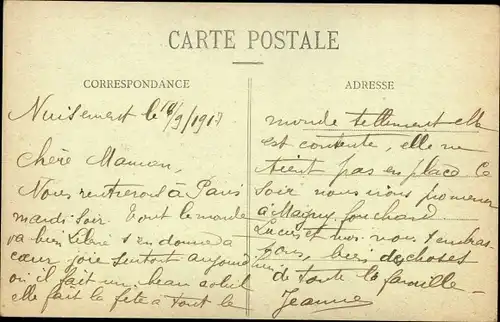 CARTE POSTALE
CORRESPONDANCE
Nuisement le 16/9/1917
Chère Maman,
Nous rentrerons à Paris
mardi soir. Tout le monde
va bien s'en donne à
cœur joie surtout aujourd'
hui il fait un beau soleil
elle fait la fête à tout le
ADRESSE
monde tellement elle
est contente, elle ne
tient pas en place. Ce
soir nous irons promener
à Magny Fouchard
Lucus et moi vous embras
sons, bien des choses
de toute la famille
Jeanne